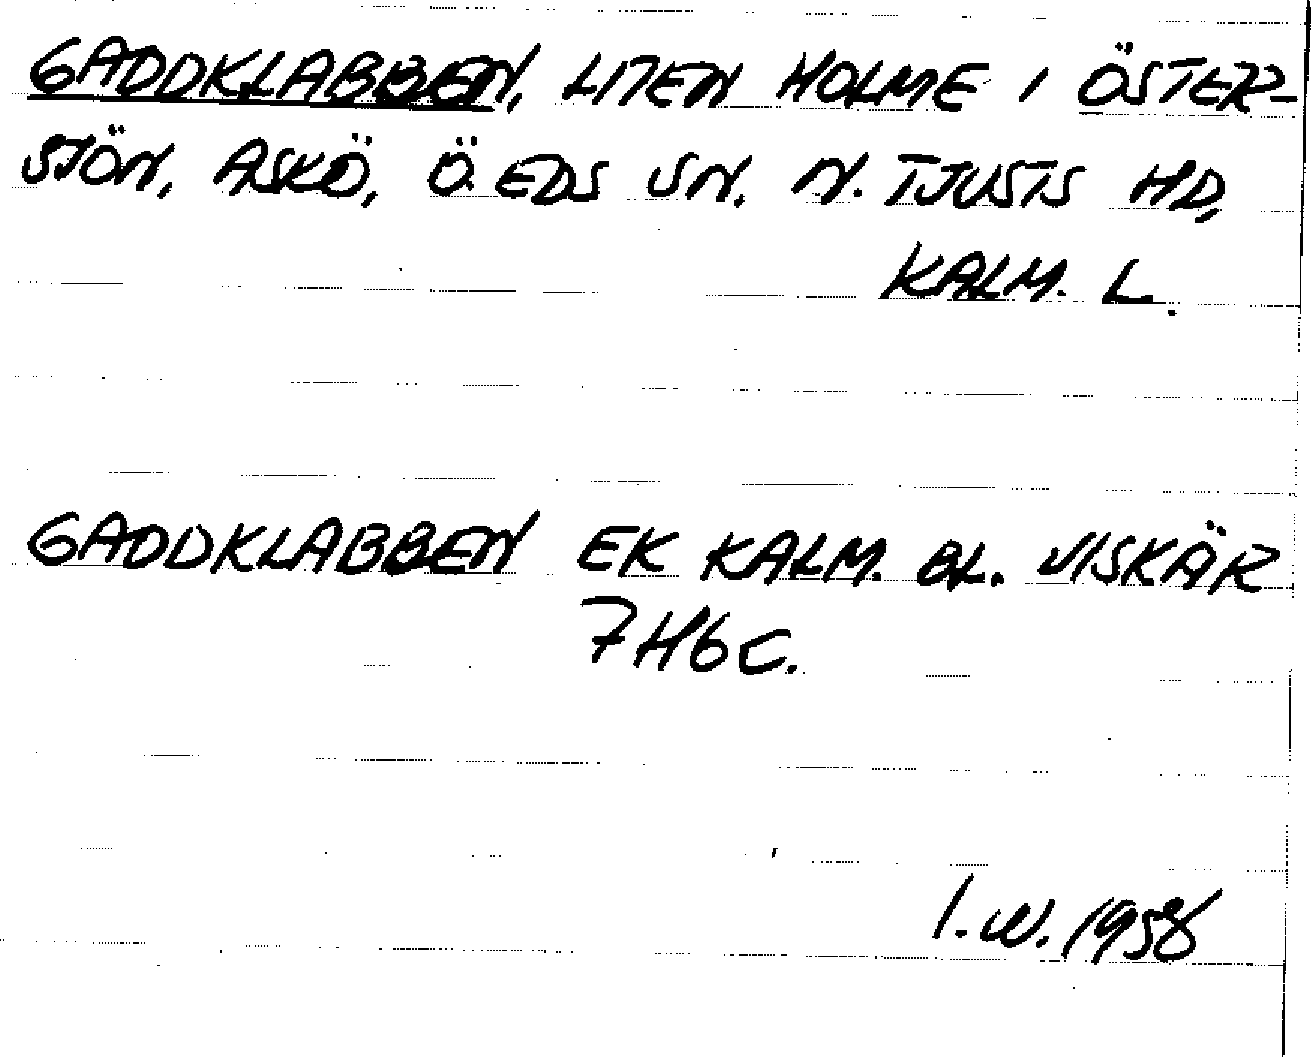 GADDKLABBEN, LITEN HOLME I ÖSTER-
SJÖN, ASKÖ, Ö. EDS SN. N. TJUSTS HD,
KALM. L.
GADDKLABBEN EK KALM. BL. VISKÄR
7H6C.
I.W. 1958